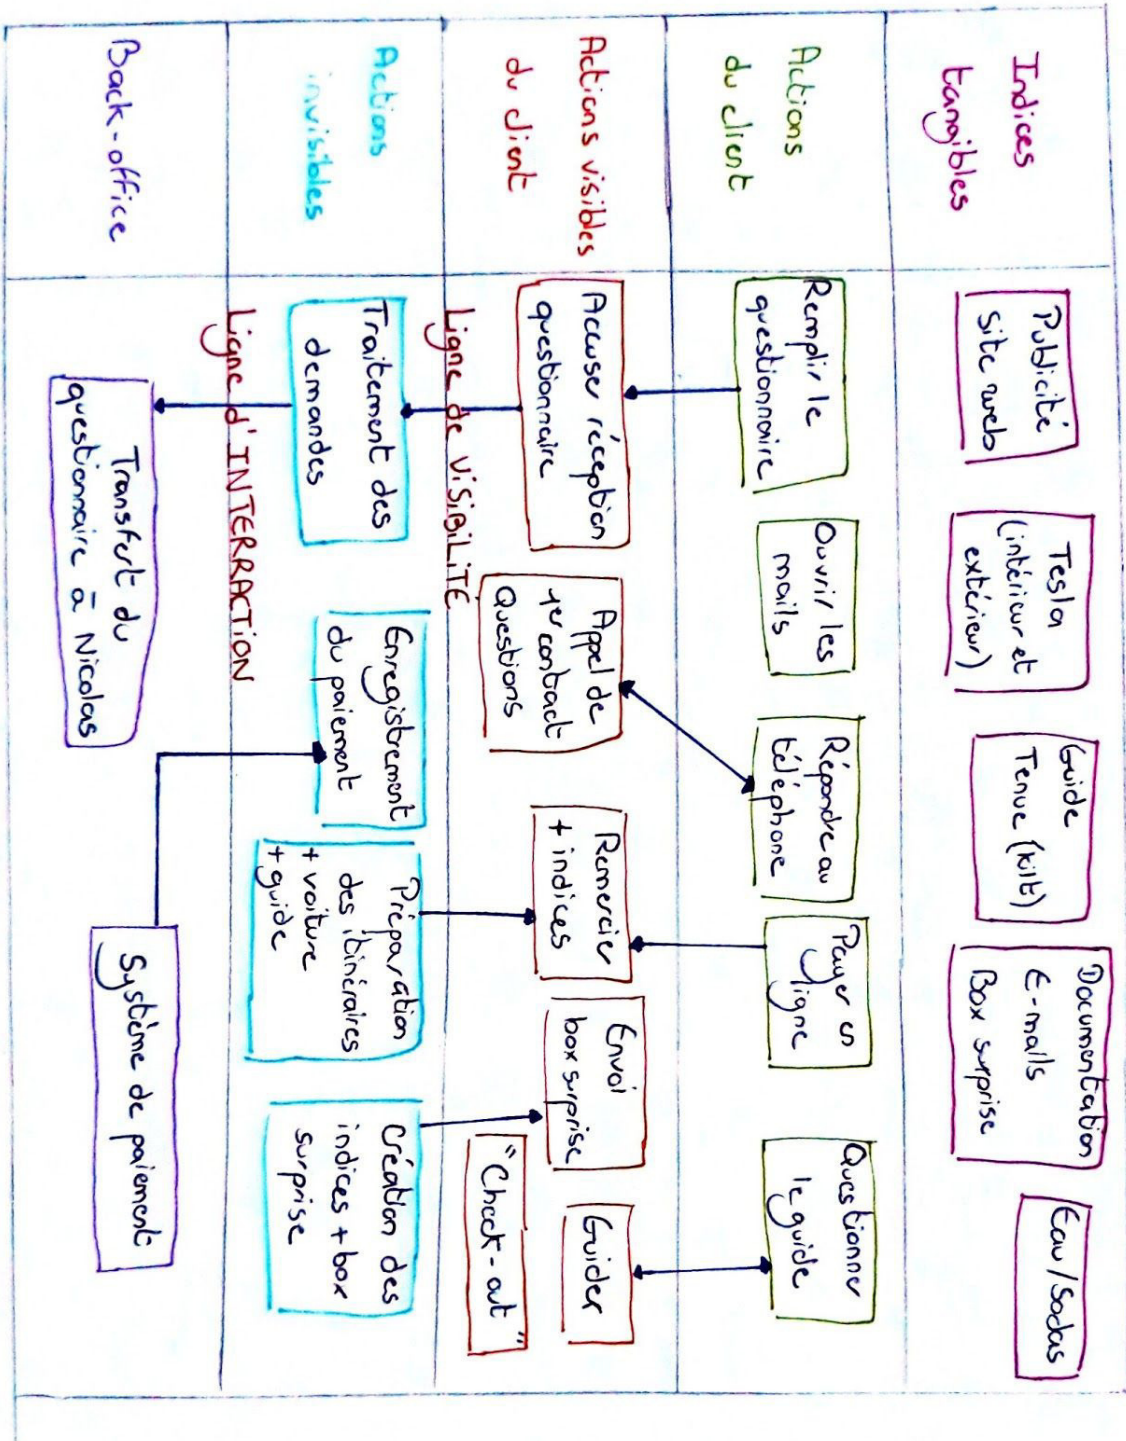 Indices
tangibles
Publicité
Site web
Tesla
(intérieur et
extérieur)
Guide
Tenue (kilt)
Documentation
E-mails
Box surprise
Eau/Sodas
Actions
du client
Remplir le
questionnaire
Ouvrir les
mails
Répondre au
téléphone
Payer en
ligne
Questionner
le guide
Actions visibles
du client
Accuser réception
questionnaire
Appel de
1er contact
Questions
Remercier
+ indices
Envoi
box surprise
Guider
"Check-out"
Ligne de VISIBILITÉ
Actions
invisibles
Traitement des
demandes
Enregistrement
du paiement
Préparation
des itinéraires
+ voiture
+ guide
Création des
indices + box
surprise
Ligne d'INTERRACTION
Back-office
Transfert du
questionnaire à Nicolas
Système de paiement